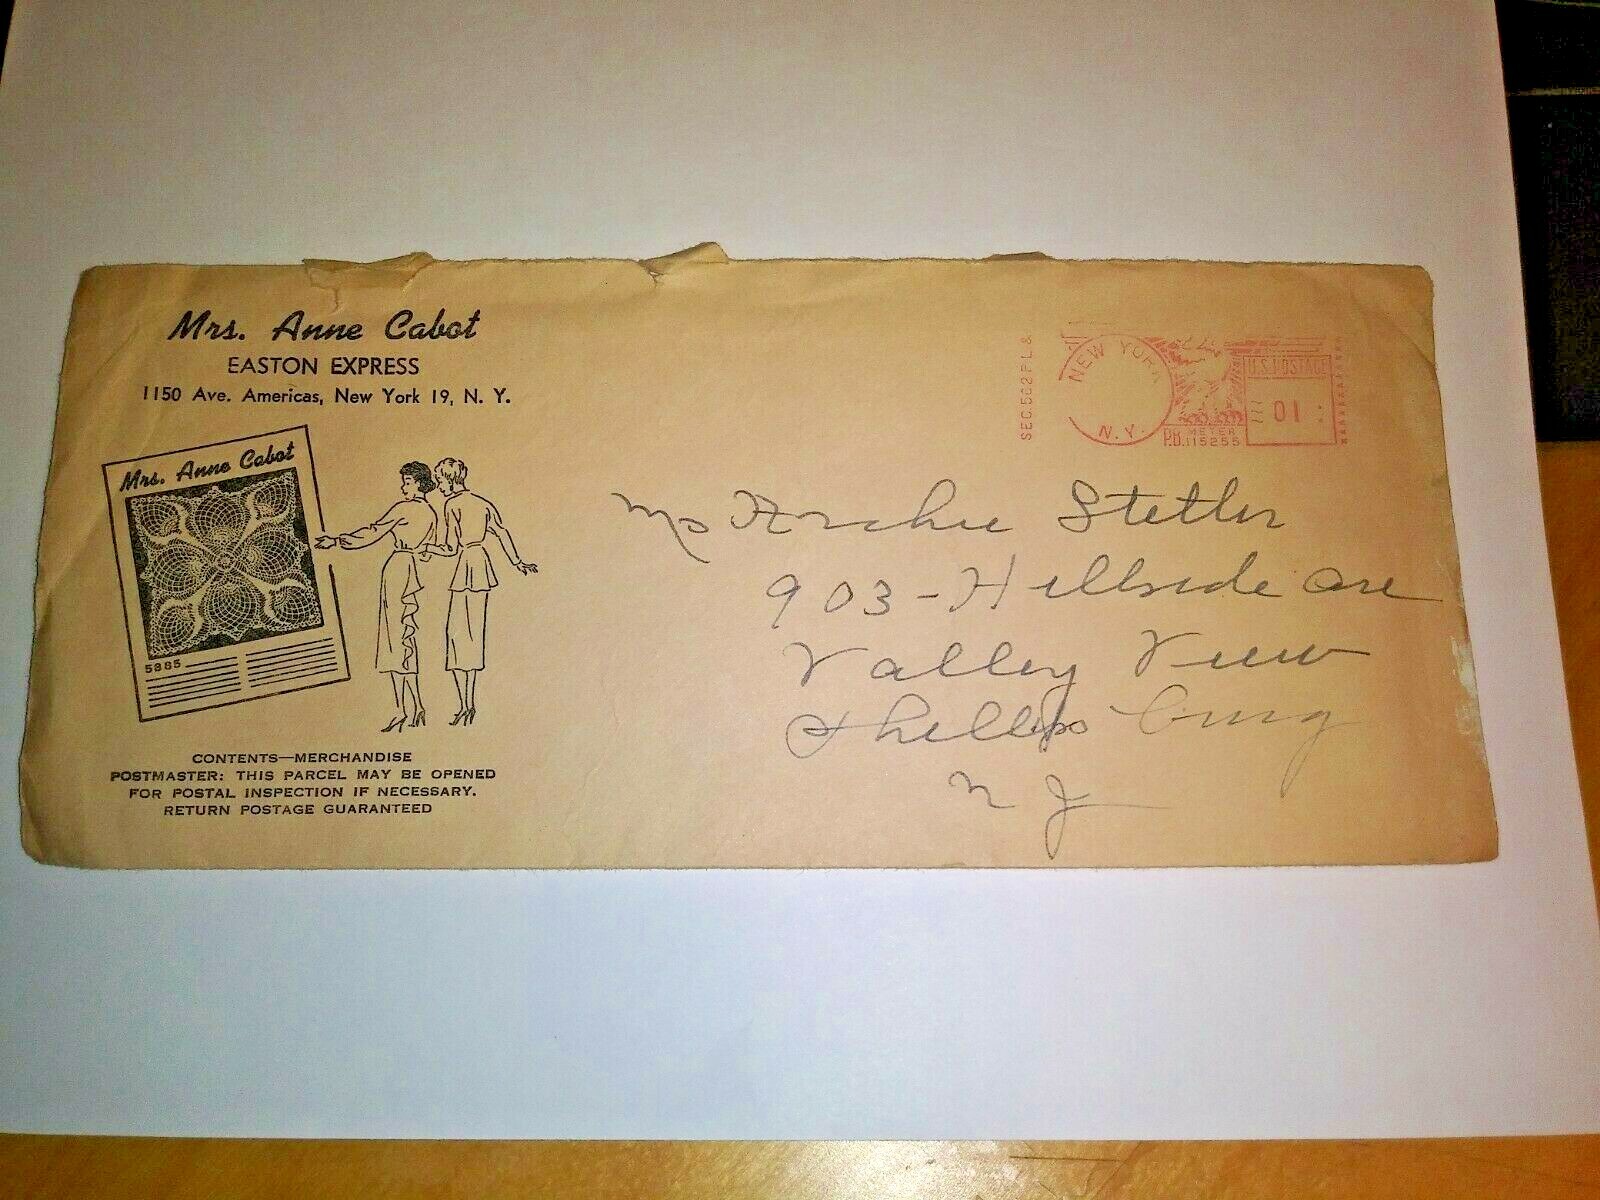 Mrs. Anne Cabot
EASTON EXPRESS
1150 Ave. Americas, New York 19, N. Y.
Mrs. Anne Cabot
5885
CONTENTS—MERCHANDISE
POSTMASTER: THIS PARCEL MAY BE OPENED
FOR POSTAL INSPECTION IF NECESSARY.
RETURN POSTAGE GUARANTEED
SEC. 562 P. L. &
NEW YORK
N. Y.
U.S. POSTAGE
01
METER
P.B. 115255
Archie Stetler
903 - Hillside Ave
Valley View
Phillipsburg
N J